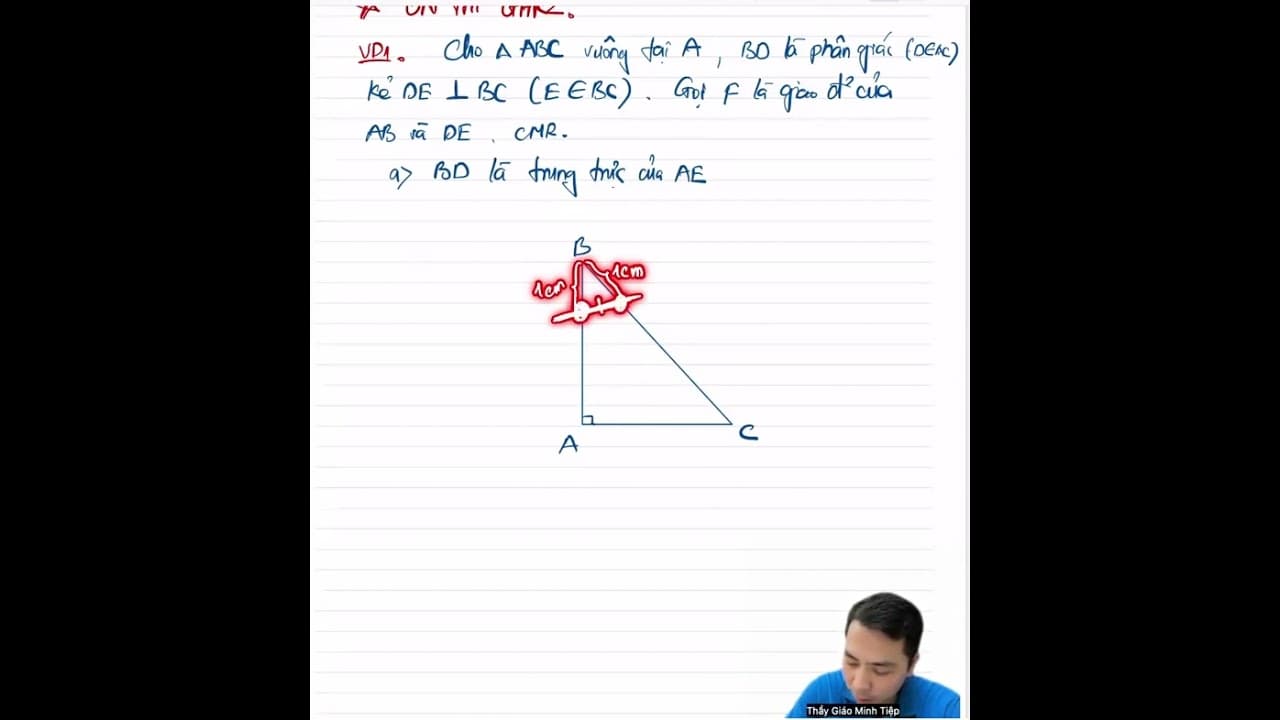 VD1. Cho Δ ABC vuông tại A, BD là phân giác (D∈AC)
kẻ DE ⊥ BC (E ∈ BC). Gọi F là giao đ² của
AB và DE. CMR.
a> BD là trung trực của AE
B
1cm
1cm
A
C
Thầy Giáo Minh Tiệp